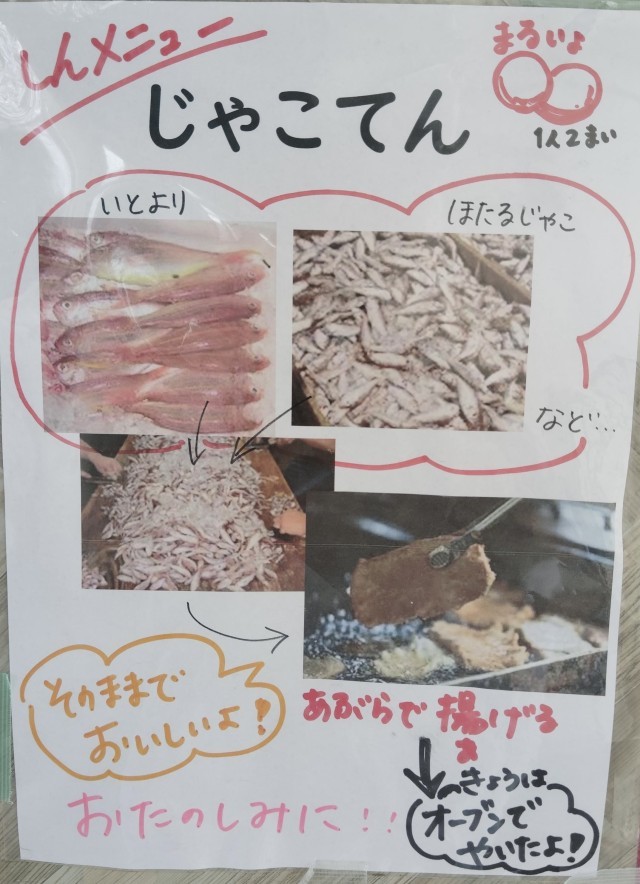 しんメニュー
まるいよ
じゃこてん
1人2まい
いとより
ほたるじゃこ
など…
そのままで
おいしいよ!
あぶらで 揚げる
あ
きょうは
オーブンで
やいたよ!
おたのしみに!!